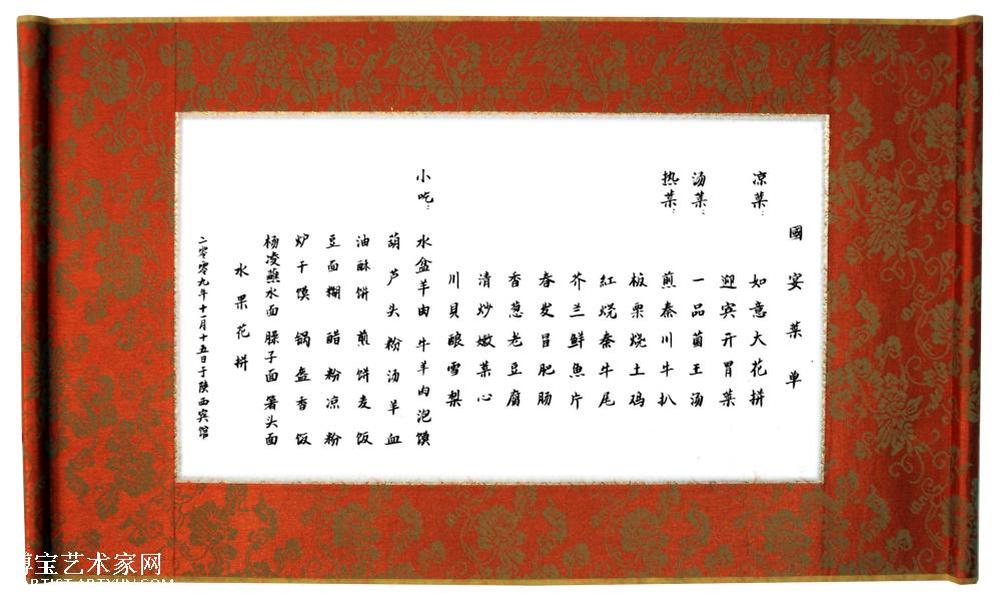 國宴菜单
凉菜：如意大花拼
迎宾开胃菜
汤菜：一品菌王汤
热菜：煎秦川牛扒
板栗烧土鸡
紅烧秦牛尾
芥兰鲜魚片
春发冒肥肠
香葱老豆腐
清炒嫩菜心
川貝酿雪梨
小吃：水盆羊肉 牛羊肉泡馍
葫芦头 粉汤羊血
油酥饼 煎饼 麦饭
豆面糊 醋粉 凉粉
炉干馍 锅盔 香饭
杨凌蘸水面 臊子面 箸头面
水果花拼
二零零九年十一月十五日于陕西宾馆
博宝艺术家网
ARTIST.ARTXUN.COM